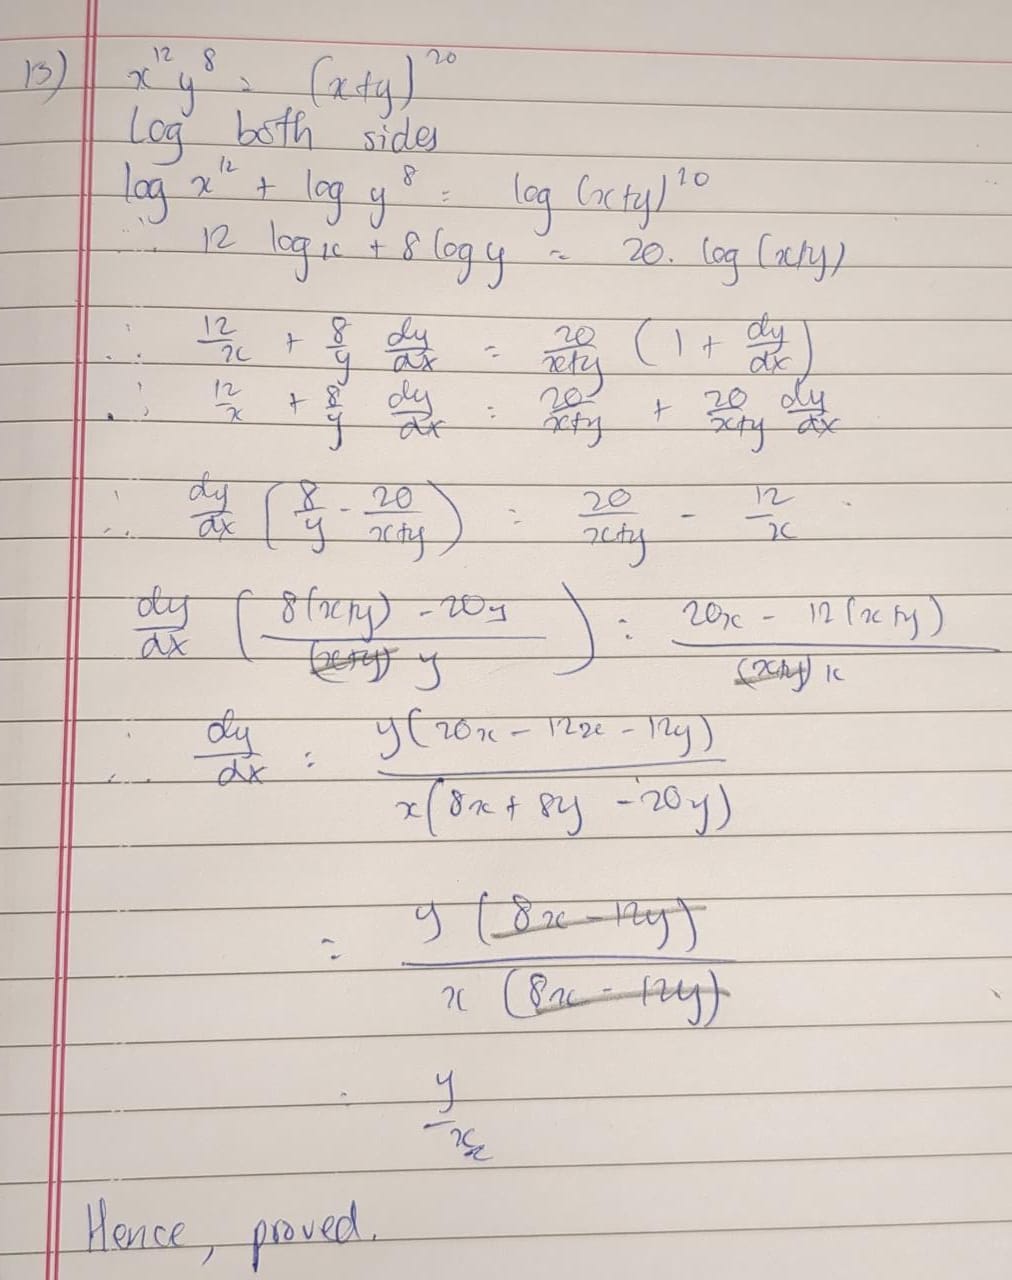 13) x¹² y⁸ = (x+y)²⁰
Log both sides
log x¹² + log y⁸ = log (x+y)²⁰
∴ 12 log x + 8 log y = 20. log (x+y)
∴ 12/x + 8/y dy/dx = 20/x+y (1 + dy/dx)
∴ 12/x + 8/y dy/dx = 20/x+y + 20/x+y dy/dx
∴ dy/dx (8/y - 20/x+y) = 20/x+y - 12/x
dy/dx (8(x+y) - 20y / (x+y) y) = 20x - 12(x+y) / (x+y) x
∴ dy/dx = y(20x - 12x - 12y) / x(8x + 8y - 20y)
= y (8x - 12y) / x (8x - 12y)
= y/x
Hence, proved.